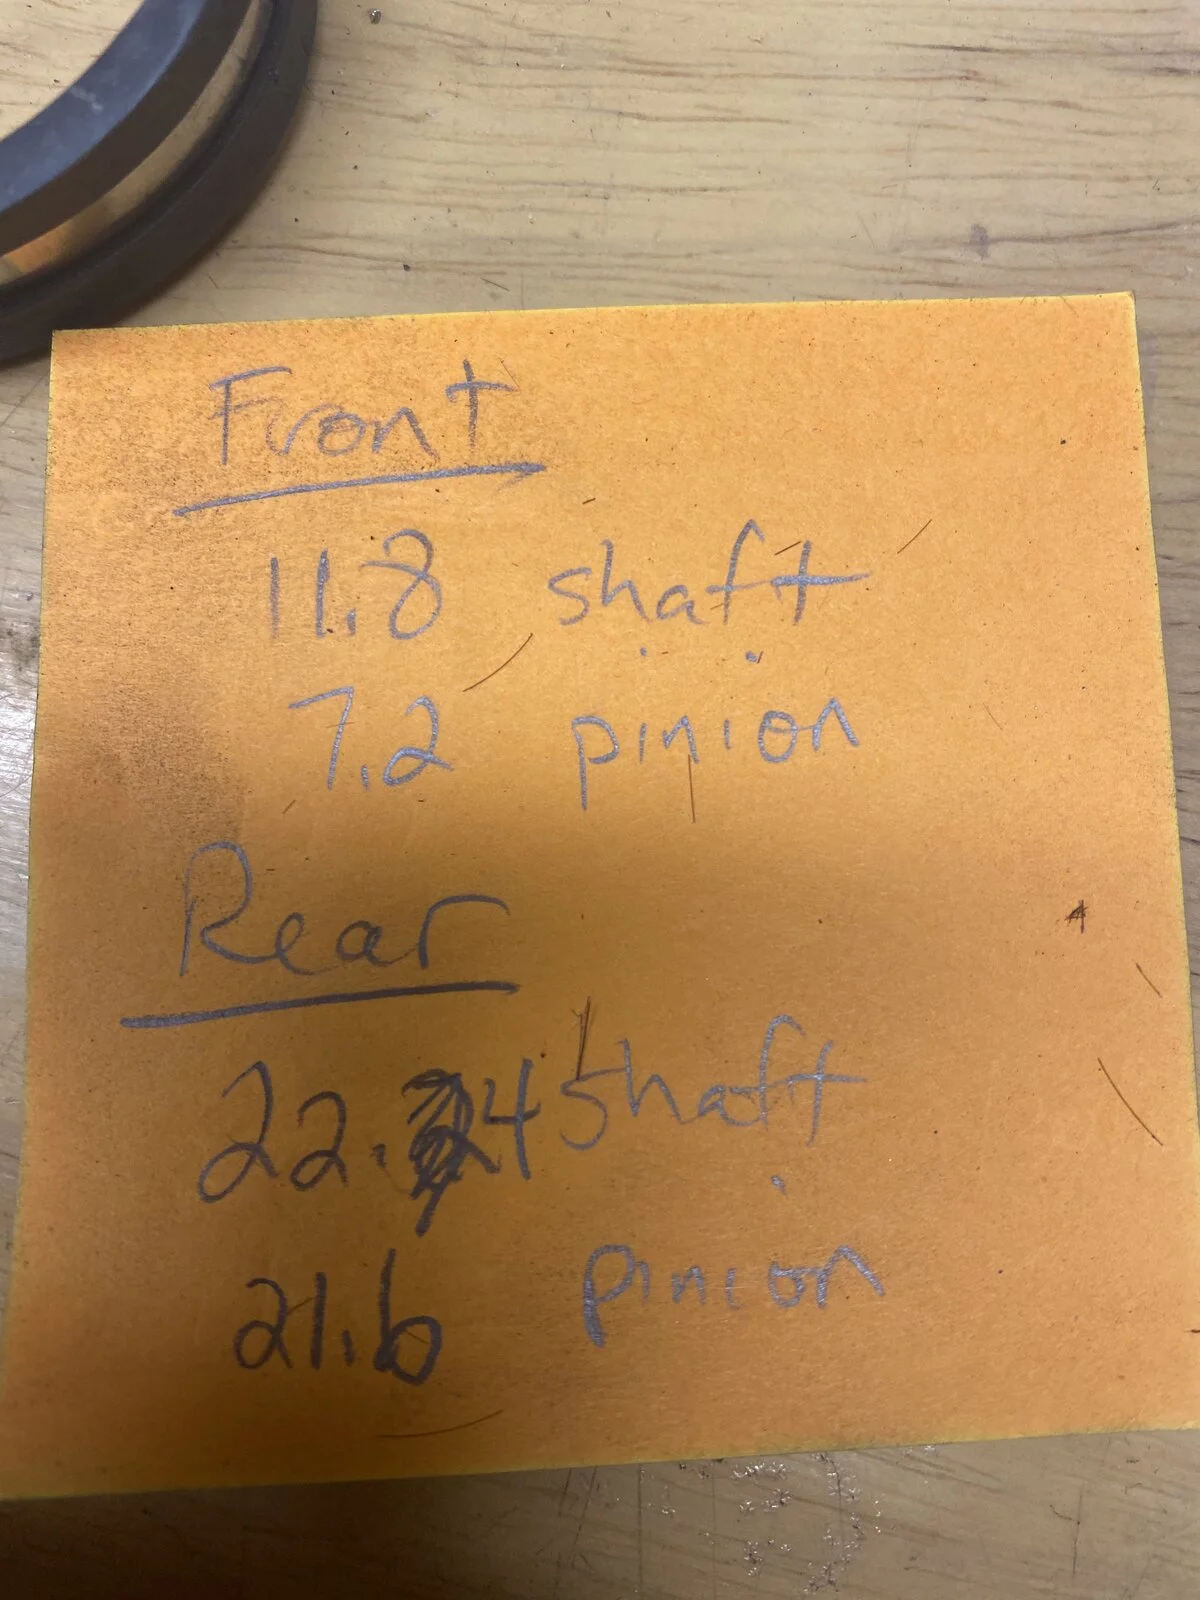 Front
11.8 shaft
7.2 pinion
Rear
22.4 shaft
21.6 pinion